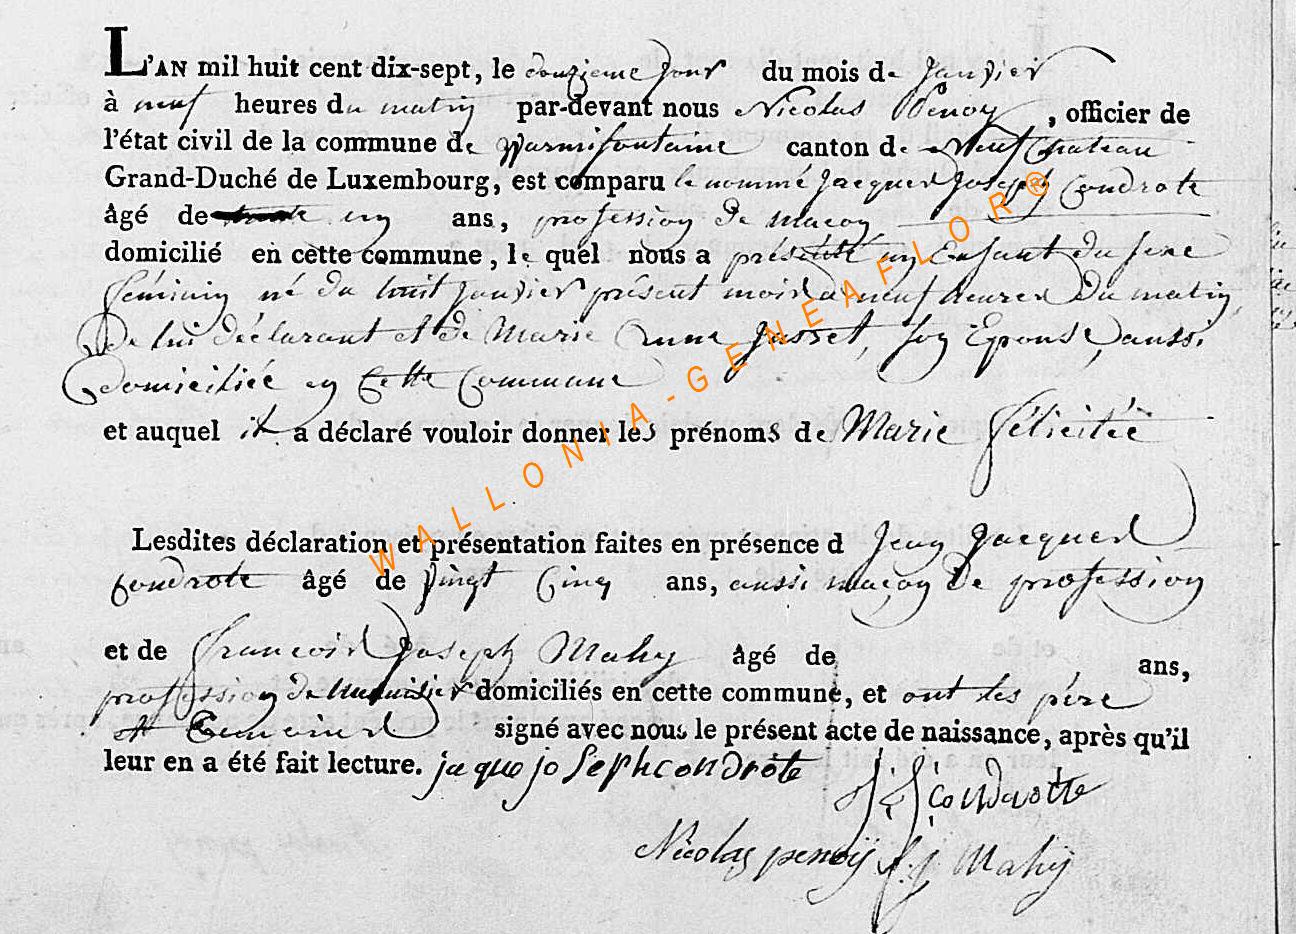 L'AN mil huit cent dix-sept, le douzieme jour du mois de Janvier
à neuf heures du matin par-devant nous Nicolas Penoy, officier de
l'état civil de la commune de Warmifontaine canton de Neufchateau
Grand-Duché de Luxembourg, est comparu le nommé Jacques Joseph Condrote
âgé de trente un ans, profession de maçon
domicilié en cette commune, le quel nous a présenté un Enfant du sexe
féminin né du huit Janvier présent mois a neuf heures du matin,
De lui déclarant et de Marie Anne Jasset, son Epouse, aussi
domiciliée en Cette Commune
et auquel il a déclaré vouloir donner les prénoms de Marie Félicitée
Lesdites déclaration et présentation faites en présence d Jean Jacques
Condrote âgé de vingt Cinq ans, aussi maçon de profession
et de francois Joseph Mahy âgé de ans,
profession de menuisier domiciliés en cette commune, et ont les père
et Temoins signé avec nous le présent acte de naissance, après qu'il
leur en a été fait lecture. jaque joSeph condrote
J: J: condrotte
Nicolas penoÿ f: j Mahÿ
WALLONIA-GENEAFLOR®